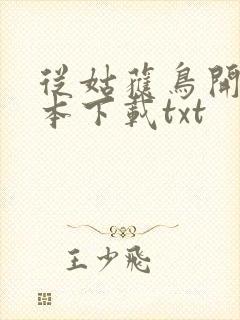 從姑獲鳥開
本下載txt
王少飛